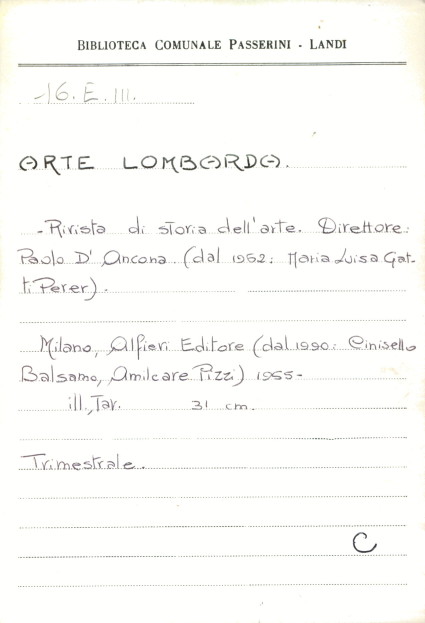 BIBLIOTECA COMUNALE PASSERINI - LANDI
-16. E. III.
ARTE LOMBARDA.
- Rivista di storia dell'arte. Direttore:
Paolo D' Ancona (dal 1962: Maria Luisa Gat-
ti Perer).
Milano, Alfieri Editore (dal 1990: Cinisello
Balsamo, Amilcare Pizzi) 1955-
ill., Tav. 31 cm.
Trimestrale.
C